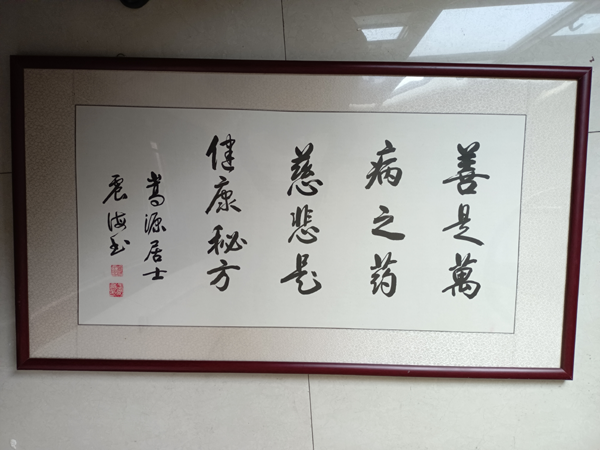 善是萬
病之药
慈悲是
健康秘方
嵩源居士
震海书